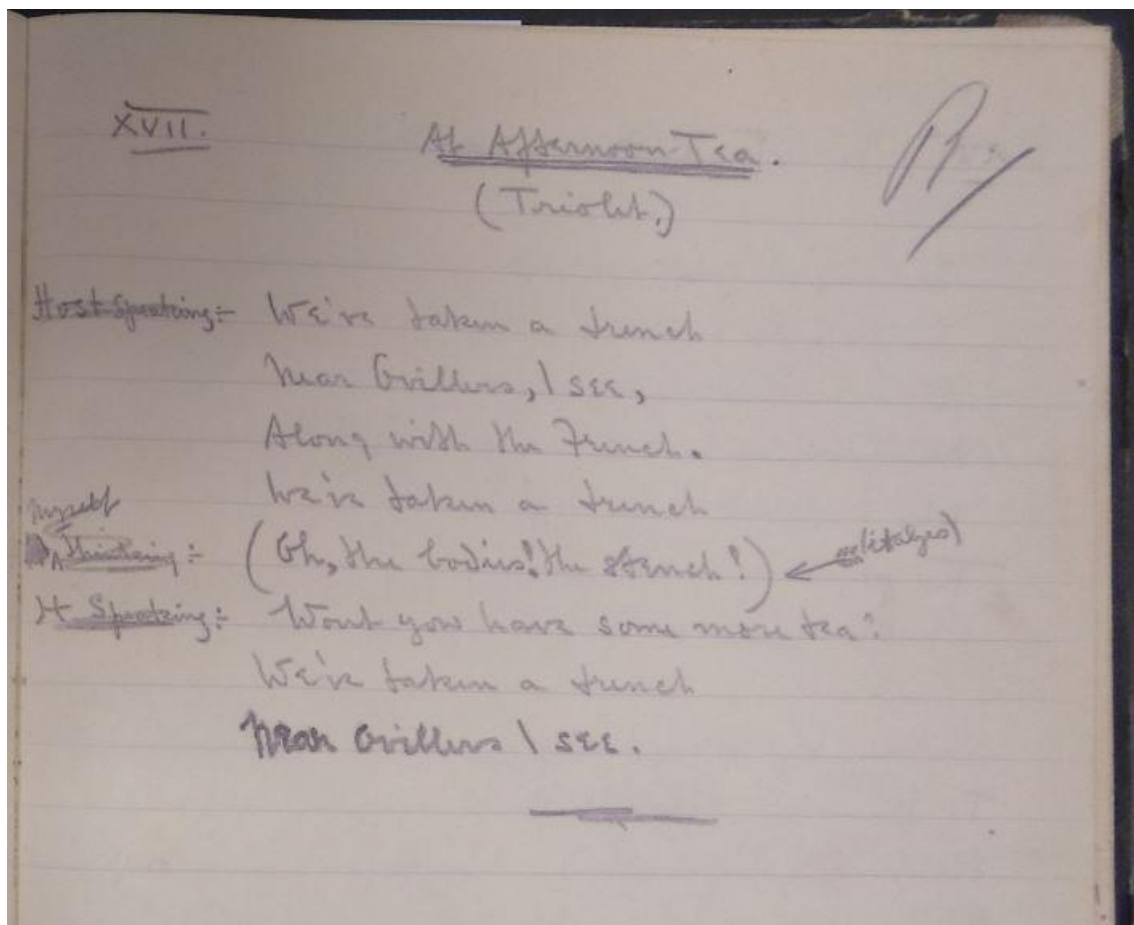 XVII.
At Afternoon-Tea.
(Triolet.)
Host Speaking:- We've taken a trench
Near Ovillers, I see,
Along with the French.
We've taken a trench
Myself
Thinking:- (Oh, the bodies! the stench!) (italges)
H Speaking:- Wont you have some more tea?
We've taken a trench
Near Ovillers I see.